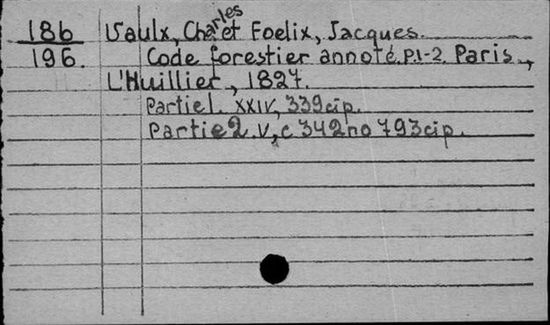 186 Vaulx, Charles et Foelix, Jacques.
196. Code forestier annoté. P.1-2. Paris.,
L'Huillier, 1827.
Partie 1. XXIV, 339 cip.
Partie 2. V, c 342 no 793 cip.